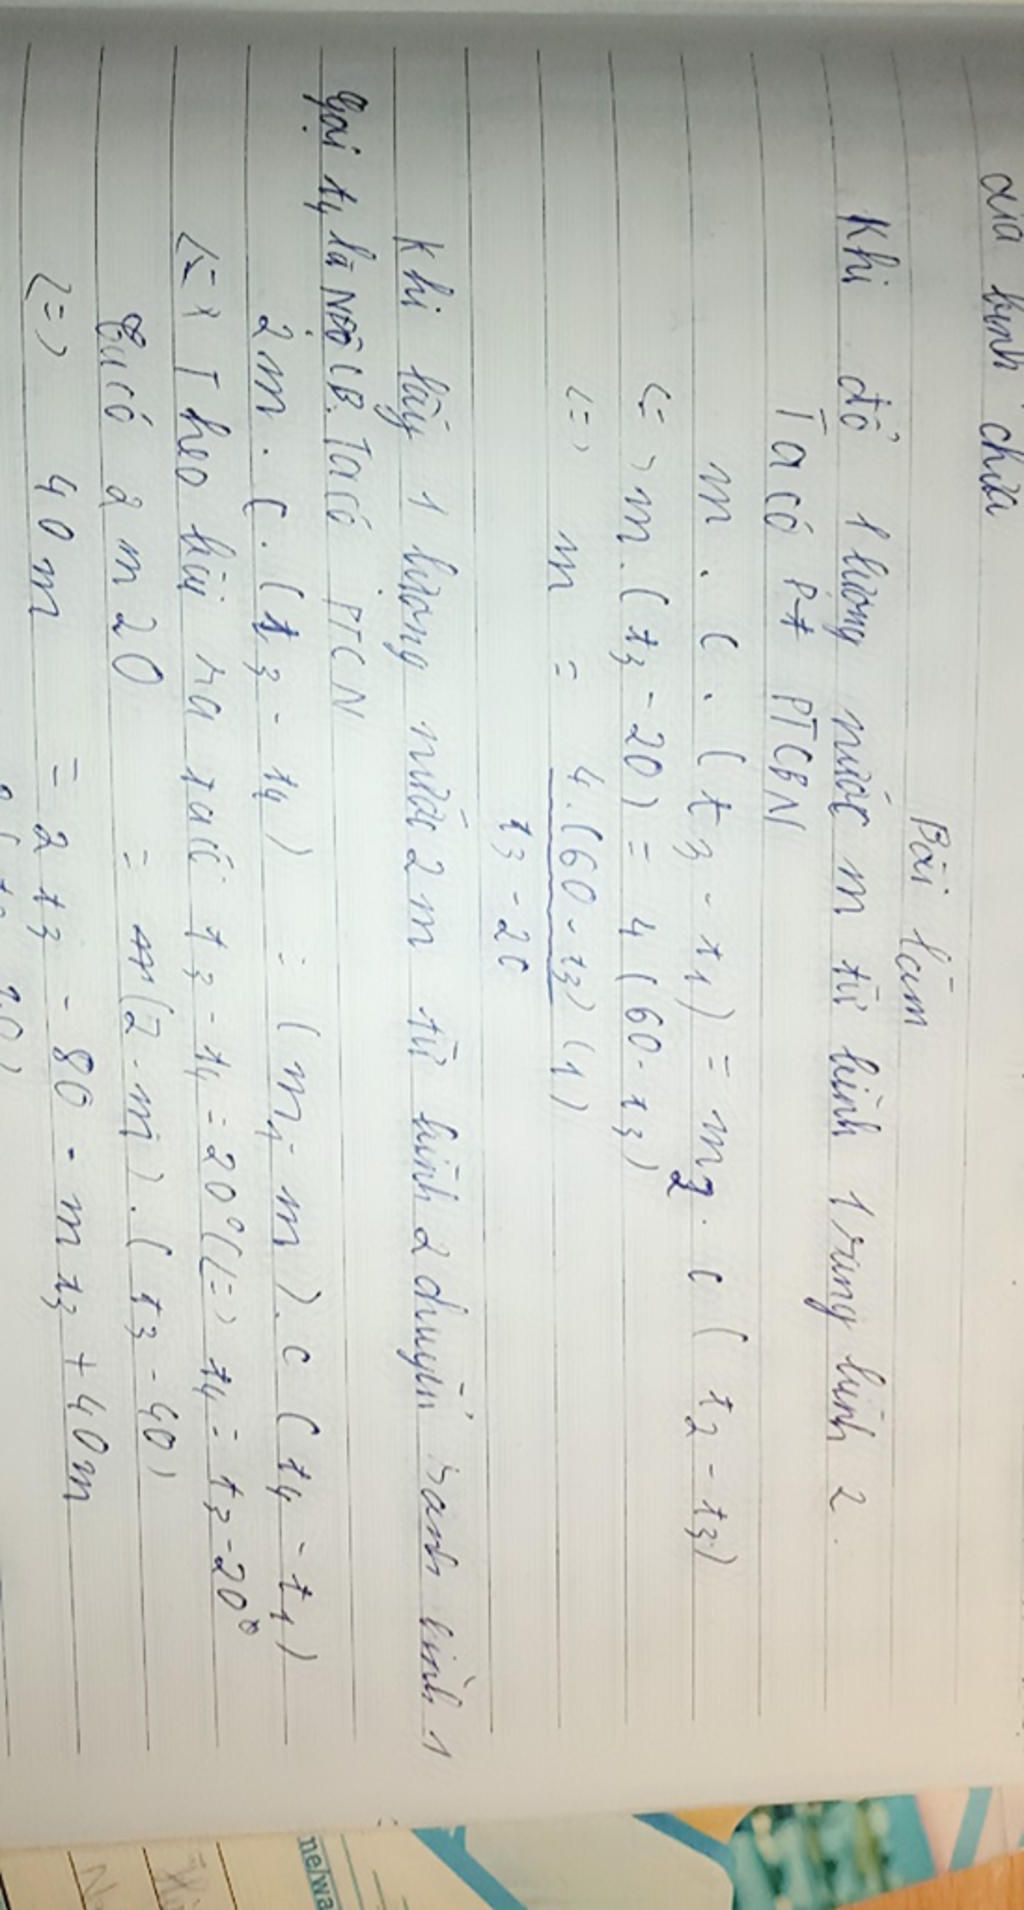 của bình chứa
Bài làm
Khi đổ 1 lượng nước m từ bình 1 sang bình 2.
Ta có Pt PTCBN
m . c . ( t3 - t1 ) = m2 . c ( t2 - t3 )
<=> m . ( t3 - 20 ) = 4 ( 60 - t3 )
<=> m = 4 . ( 60 - t3 ) / t3 - 20 (1)
Khi lấy 1 lượng nước 2m từ bình 2 chuyển sanh bình 1
Gọi t4 là NĐCB. Ta có PTCN
2m . c . ( t3 - t4 ) = ( m1 - m ) . c ( t4 - t1 )
Theo bài ra ta có t3 - t4 = 20° <=> t4 = t3 - 20°
Ta có 2 m 20 = ( 2 - m ) . ( t3 - 40 )
<=> 40m = 2 t3 - 80 - m t3 + 40m
me/wa